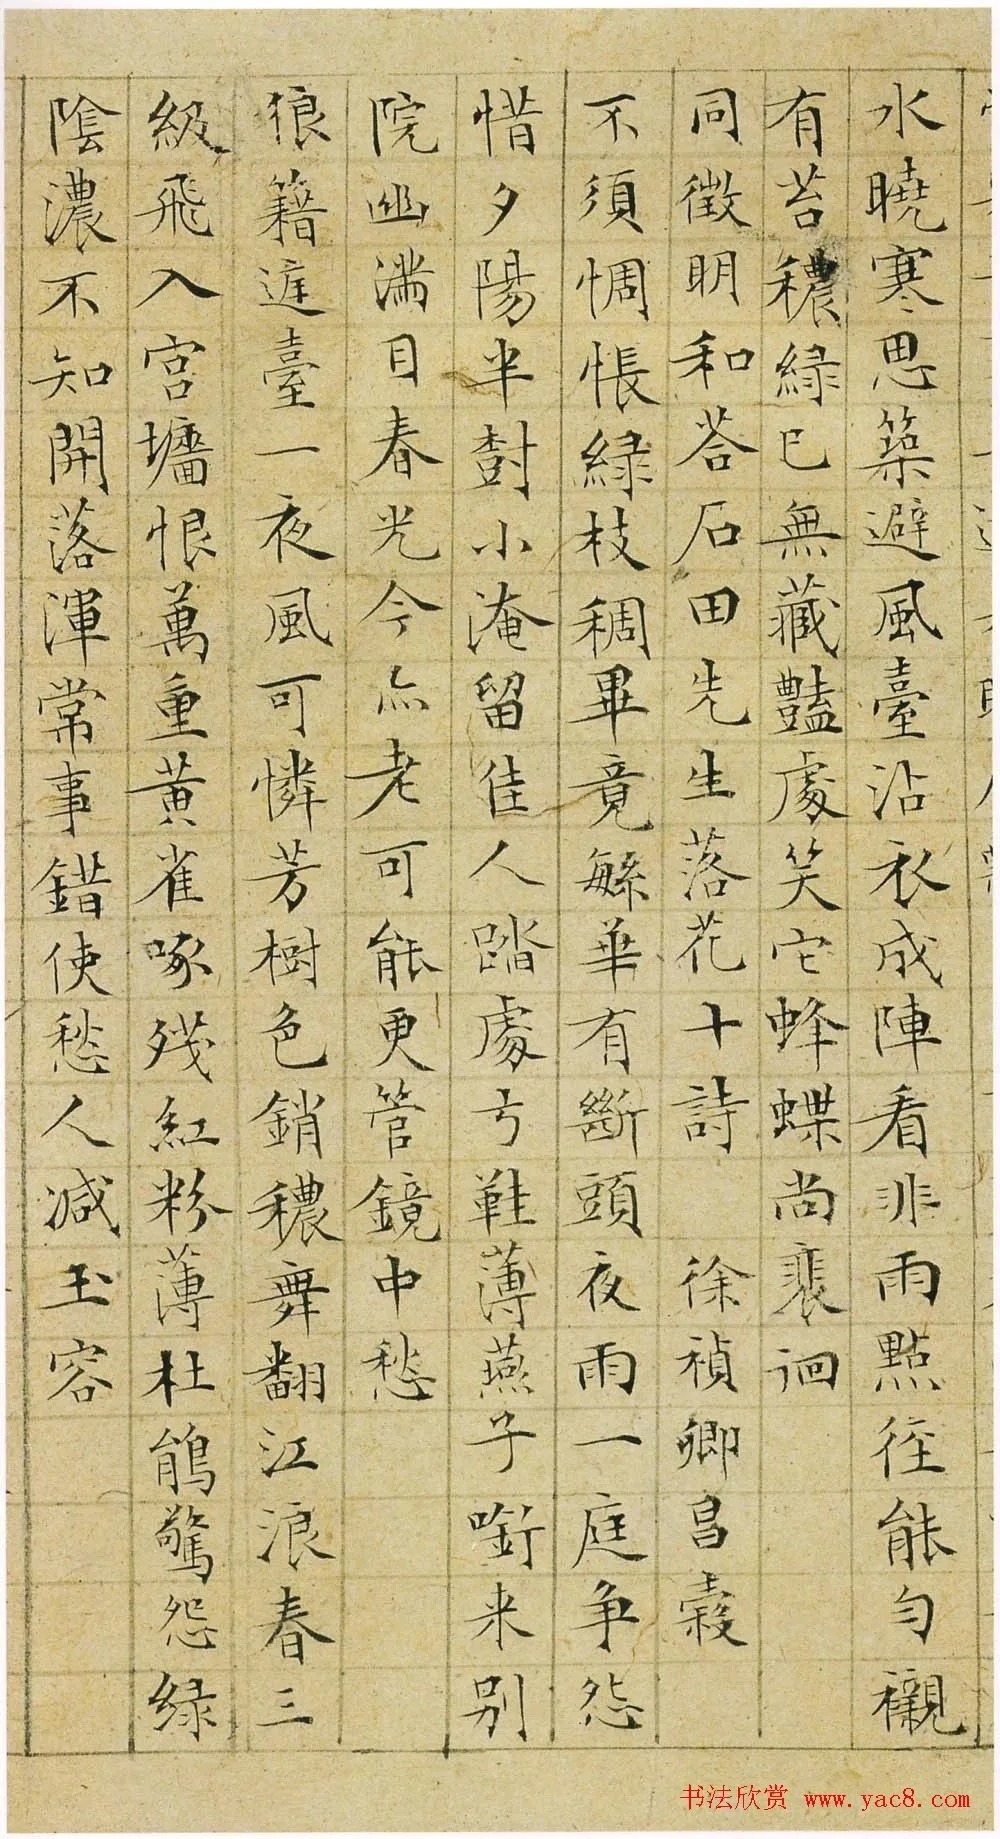 水曉寒思築避風臺沾衣成陣看非雨點徑能勻襯
有苔穠綠已無藏豔處笑它蜂蝶尚裴迴
同徵明和荅石田先生落花十詩 徐禎卿昌穀
不須惆悵綠枝稠畢竟繇華有斷頭夜雨一庭争怨
惜夕陽半樹小淹留佳人踏處弓鞋薄燕子啣來別
院幽滿目春光今亦老可能更管鏡中愁
狼籍逬臺一夜風可憐芳樹色銷穠舞翻江浪春三
級飛入宮墻恨萬重黄雀啄殘紅粉薄杜鵑驚怨綠
陰濃不知開落渾常事錯使愁人減玉容
书法欣赏 www.yac8.com